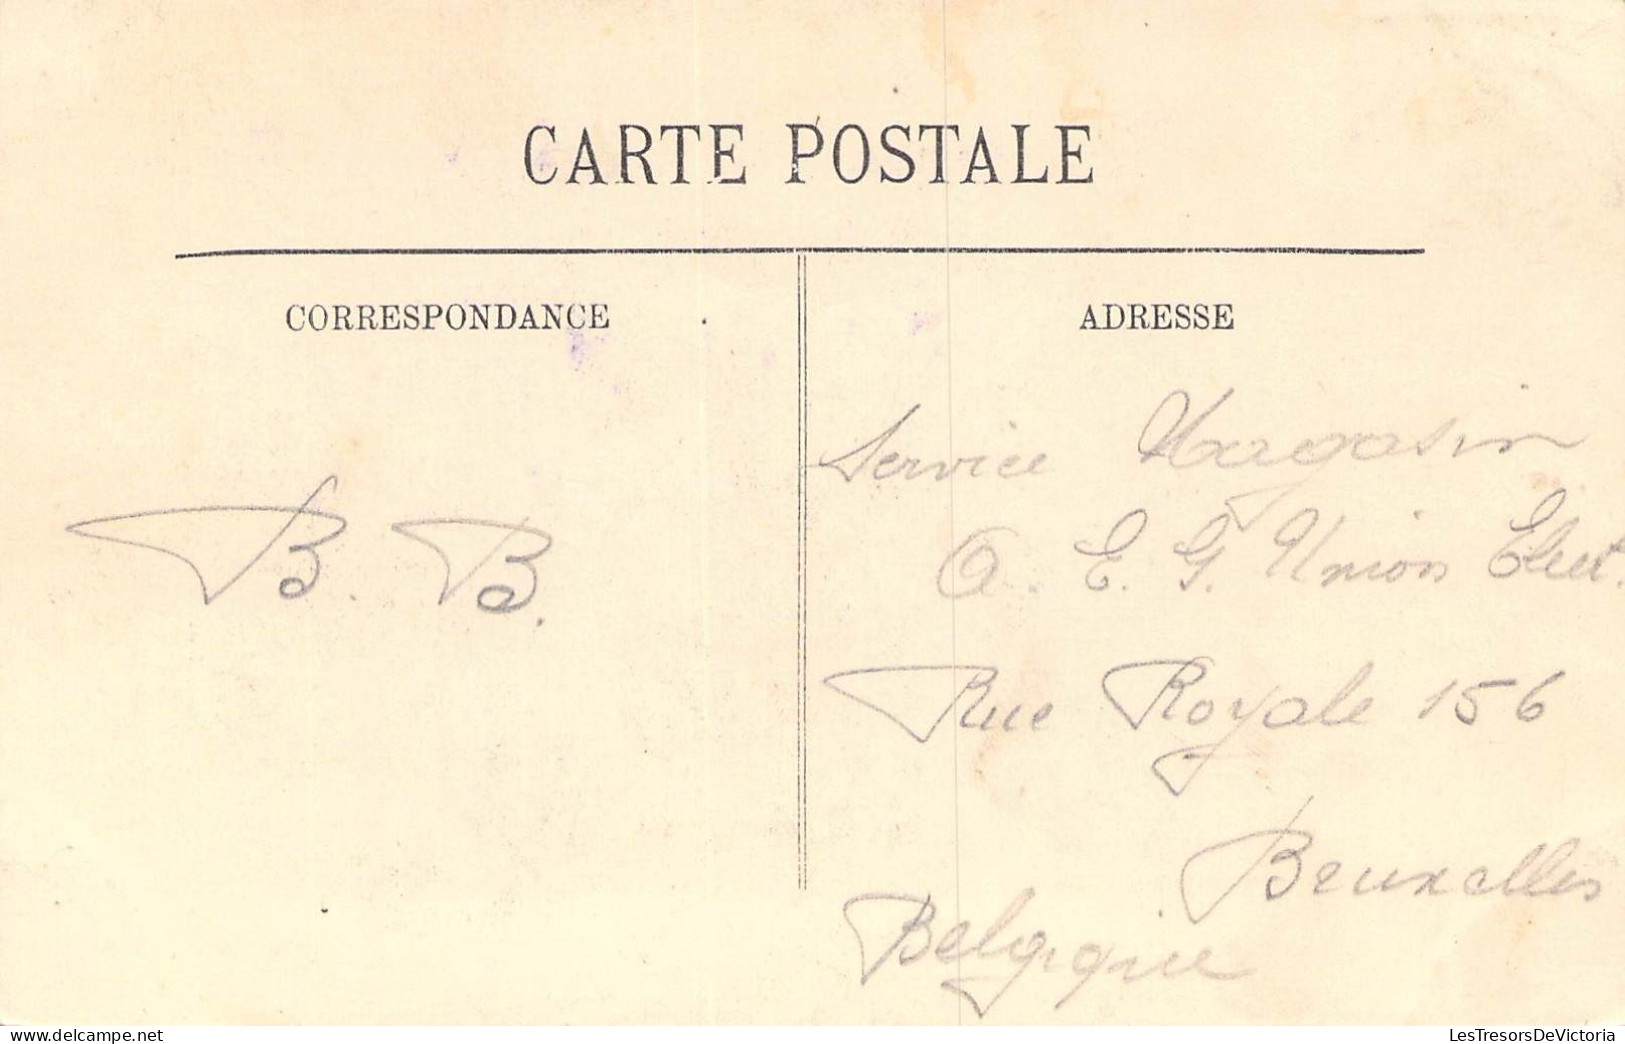 CARTE POSTALE
CORRESPONDANCE
B. B.
ADRESSE
Service Magasin
A. E. G. Union Elect.
Rue Royale 156
Bruxelles
Belgique
delcampe.net
LesTresorsDeVictoria